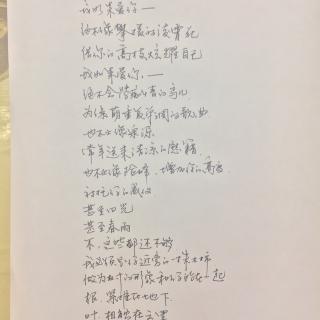 我如果爱你——
绝不像攀援的凌霄花
借你的高枝炫耀自己
我如果爱你——
绝不学痴情的鸟儿
为绿荫重复单调的歌曲
也不止像泉源
常年送来清凉的慰藉
也不止像险峰,增加你的高度
衬托你的威仪
甚至日光
甚至春雨
不,这些都还不够
我必须是你近旁的一株木棉
做为树的形象和你站在一起
根,紧握在地下
叶,相触在云里